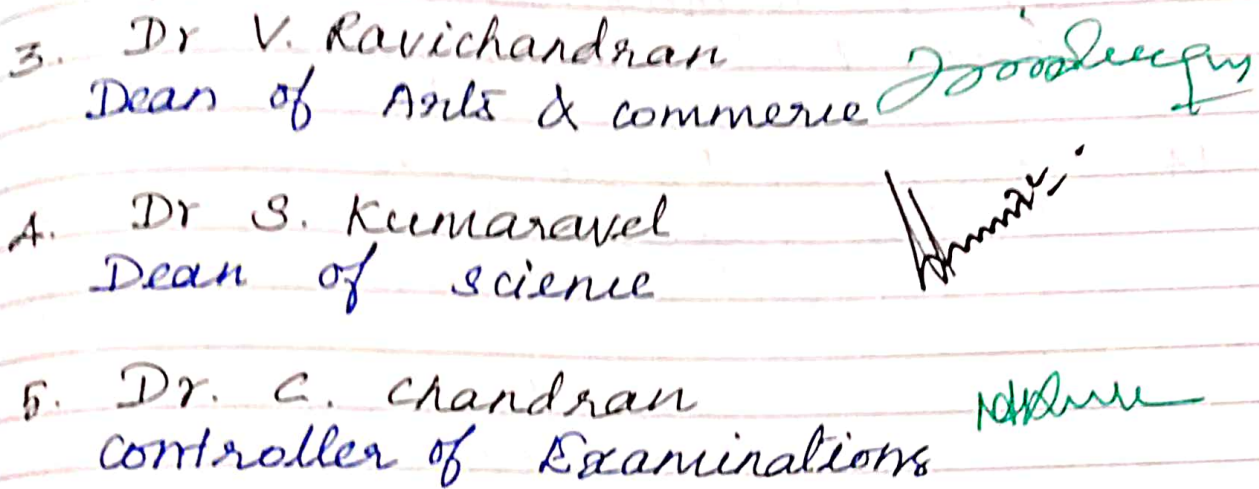 3. Dr V. Ravichandran
Dean of Arts & commerce
4. Dr S. Kumaravel
Dean of science
5. Dr. C. Chandran
controller of Examinations